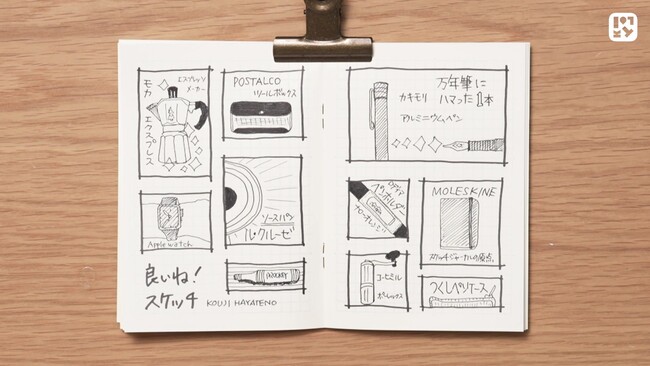 モカ
エクスプレス
エスプレッソ
メーカー
POSTALCO
ツールボックス
Apple watch
ソースパン
ル・クルーゼ
良いね!
スケッチ
KOUJI HAYATENO
万年筆に
カキモリ ハマった1本
アルミニウムペン
ロディア
ペンホルダー
MOLESKINE
スケッチジャーナルの原点。
コーヒーミル
ポーレックス
つくしペンケース